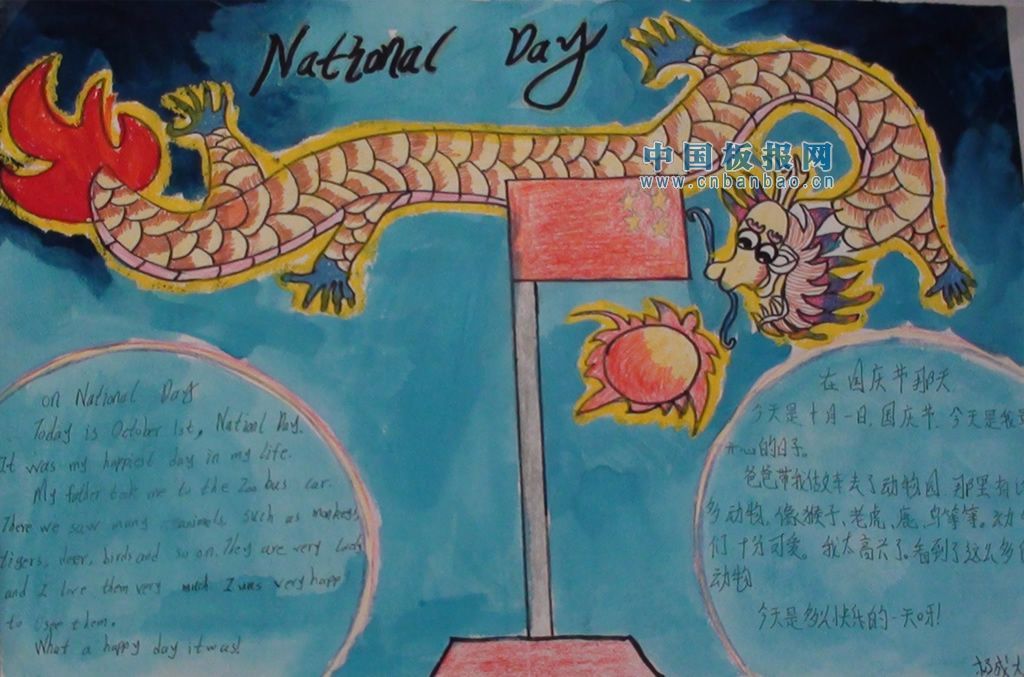 National Day
中国板报网
www.cnbanbao.cn
on National Day
Today is October 1st, National Day.
It was my happiest day in my life.
My father took me to the Zoo bus car.
There we saw many animals such as monkeys
tigers, deer, birds and so on. They are very lovely
and I love them very much I was very happy
to see them.
What a happy day it was!
在国庆节那天
今天是十月一日,国庆节.今天是我最
开心的日子。
爸爸带我做车去了动物园.那里有许
多动物,像猴子、老虎、鹿、鸟等等。动物
们十分可爱。我太高兴了。看到了这么多的
动物
今天是多么快乐的一天呀!